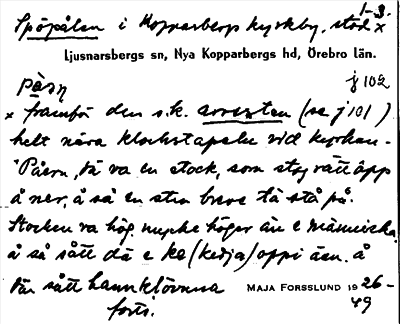 1-3.
Spöpålen i Kopparbergs kyrkby, stod x
Ljusnarsbergs sn, Nya Kopparbergs hd, Örebro län.
påsn j 102
x framför den s.k. arresten (se j 101)
helt nära klockstapeln vid kyrkan.
"Påsen, dä va en stock, som stog rätt åpp
å ner, å så en sten breve tå stå på.
Stocken va hög, mycke höger än e människa,
å så sått dä e ke (kedja) oppi äen. å
där sått hannklövuna
MAJA FORSSLUND 1926-
49
forts.